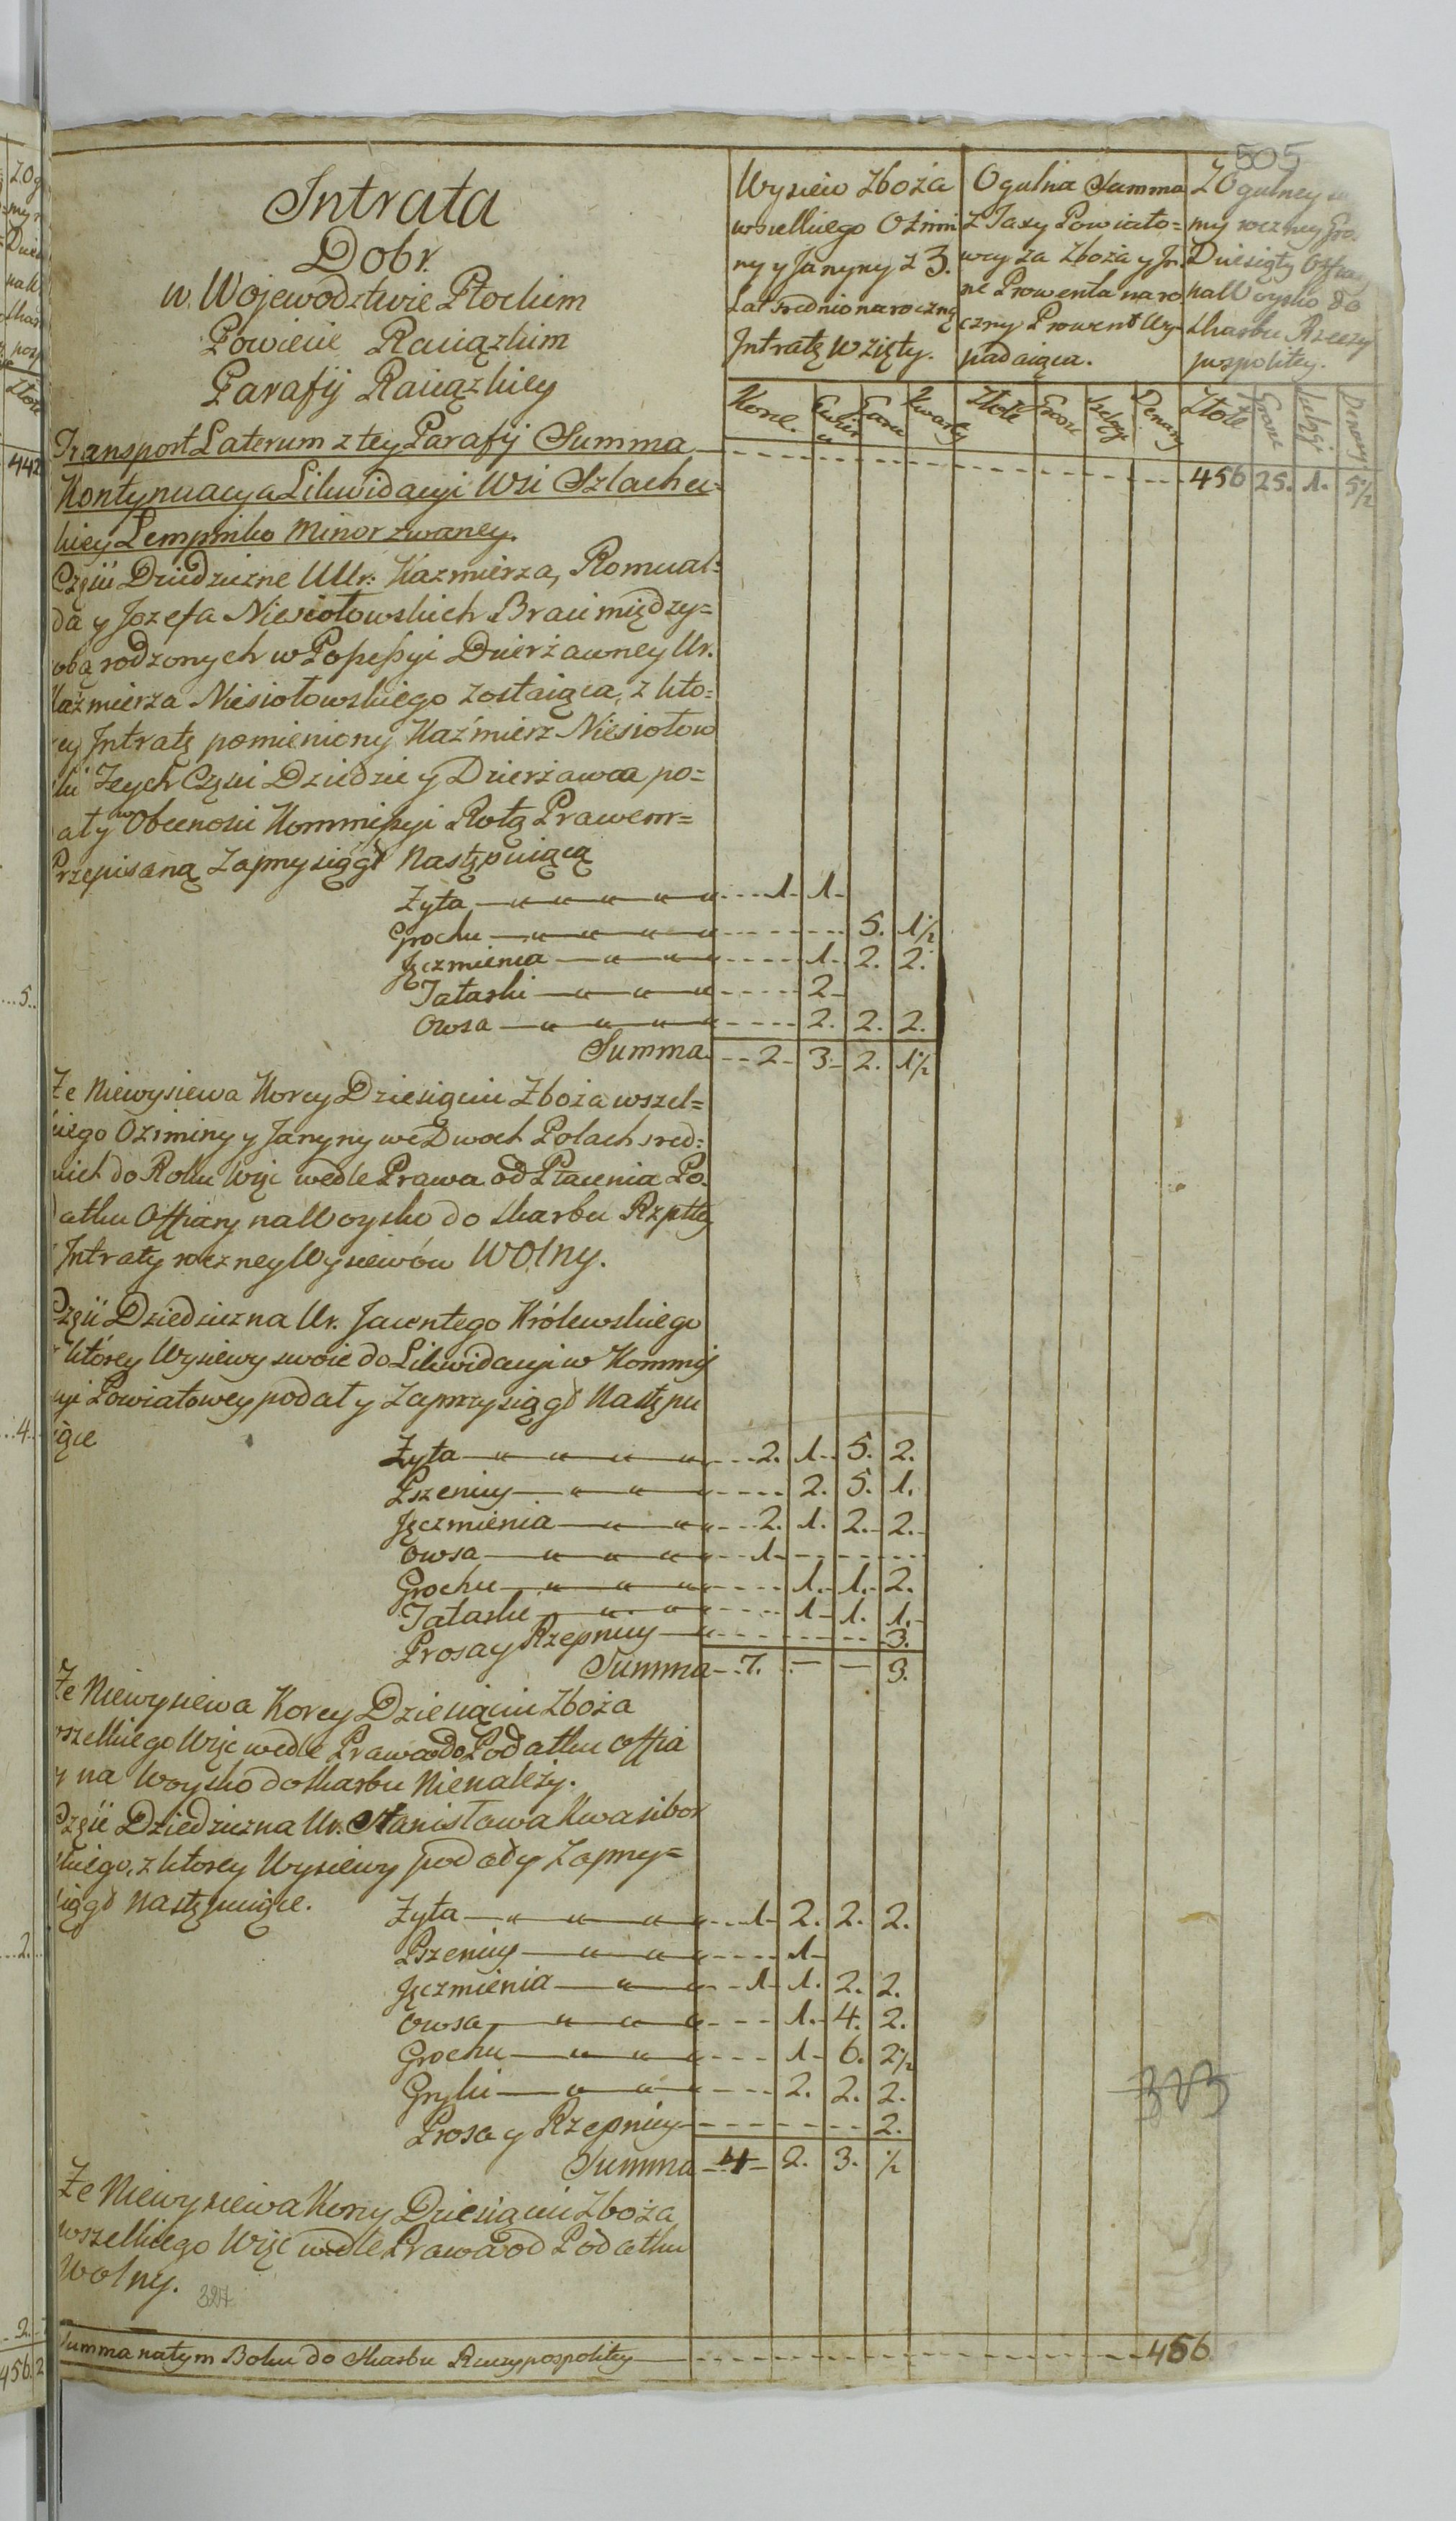 505
Intrata
Dobr.
w Województwie Płockim
Powiecie Raciązkim
Parafij Raciązkiey
Wysiew Zboża
wszelkiego Ozimi
ny y Jaryny z 3.
Lat srednio na roczną
Intratę Wzięty.
Ogulna Summa
z Taxy Powiato=
wey za Zboża y In.
ne Prowenta na ro
czny Prowent Wy-
padaiąca.
Z Ogulney
my roczney
Dziesięty Offiary
na Woysko do
Skarbu Rzeczy
pospolitey.
Korce. Ćwierci Garce Kwarty Złote Grosze Szelągi Denary Złote Grosze Szelągi Denary
Transport Laterum z tey Parafij Summa 456 25. 1. 5/2
Kontynuacya Likwidacyi Wsi Szlachec-
kiey Lempinko Minor zwaney.
Częsci Dziedziczne UUr: Kazmierza, Romual=
da y Jozefa Niesiołowskich Braci między=
obą rodzonych w Possessyi Dzierżawney Ur.
Kaźmierza Niesiołowskiego zostaiąca, z kto=
rey Intratę pomieniony Kaźmierz Niesiołow
ski Tych Częsci Dziedzic y Dzierżawca po=
dał y w Obecnosci Kommissyi Rotą Prawem=
Przepisaną Zaprzysiągł Następuiącą
Żyta 1. 1.
Grochu 5. 1 1/2
Jęczmienia 1. 2. 2.
Tatarki 2
Owsa 2. 2. 2.
Summa 2. 3. 2. 1 1/2
Że Niewysiewa Korcy Dziesięciu Zboża wszel=
kiego Oziminy y Jaryny we Dwoch Polach sred=
nich do Roku Więc wedle Prawa od Płacenia Po.
datku Offiary na Woysko do Skarbu Rzpltey
Intraty roczney Wysiewów Wolny.
Częsć Dziedziczna Ur. Jacentego Królewskiego
z którey Wysiewy swoie do Likwidacyi w Kommis
syi Powiatowey podał y Zaprzysiągł Następu
iące
Żyta 2. 1. 5. 2.
Pszenicy 2. 5. 1.
Jęczmienia 2. 1. 2. 2.
Owsa 1.
Grochu 1. 1. 2.
Tatarki 1. 1. 1.
Prosa y Rzepnicy 3.
Summa 7. — — 3.
Że Niewysiewa Korcy Dziesięciu Zboża
wszelkiego Więc wedle Prawa do Podatku Offia
ry na Woysko do Skarbu Nienależy.
Częsć Dziedziczna Ur. Stanisława Kwasibor
skiego, z ktorey Wysiewy podał y Zaprzy=
siągł Następuiące.
Żyta 1. 2. 2. 2.
Pszenicy 1.
Jęczmienia 1. 1. 2. 2.
Owsa 1. 4. 2.
Grochu 1. 6. 2 1/2
Gryki 2. 2. 2.
Prosa y Rzepnicy 2.
Summa 4 2. 3. 1/2
Że Niewysiewa Korcy Dziesięciu Zboża
wszelkiego Więc wedle Prawa od Podatku
Wolny.
327
Summa na tym Boku do Skarbu Rzeczypospolitey 456